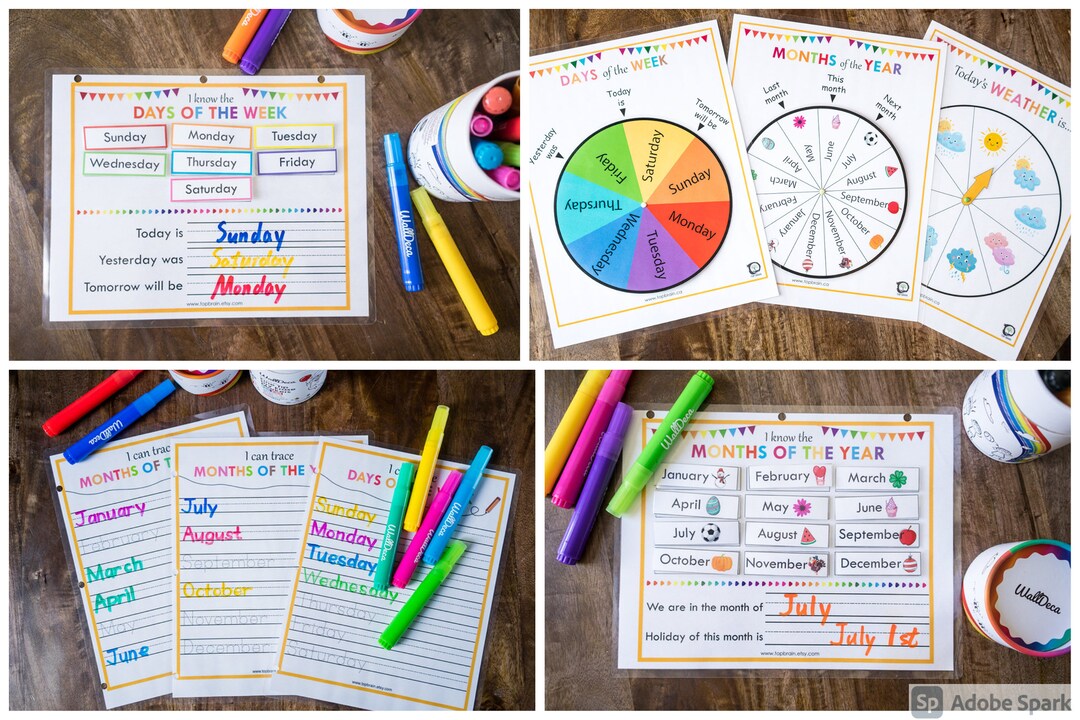 I know the
DAYS OF THE WEEK
Sunday Monday Tuesday
Wednesday Thursday Friday
Saturday
Today is Sunday
Yesterday was Saturday
Tomorrow will be Monday
www.topbrain.etsy.com
WallDeca
DAYS of the WEEK
Today is
Yesterday was
Tomorrow will be
Saturday
Sunday
Monday
Tuesday
Wednesday
Thursday
Friday
www.topbrain.ca
MONTHS of the YEAR
Last month
This month
Next month
June
July
August
September
October
November
December
January
February
March
April
May
www.topbrain.ca
Today's WEATHER is...
WallDeca
I can trace
MONTHS OF THE
January
February
March
April
May
June
I can trace
MONTHS OF THE Y
July
August
September
October
November
December
DAYS O
Sunday
Monday
Tuesday
Wednesday
Thursday
Friday
Saturday
WallDeca
WallDeca
WallDeca
WallDeca
I know the
MONTHS OF THE YEAR
January February March
April May June
July August September
October November December
We are in the month of July
Holiday of this month is July 1st
www.topbrain.etsy.com
WallDeca
Sp Adobe Spark